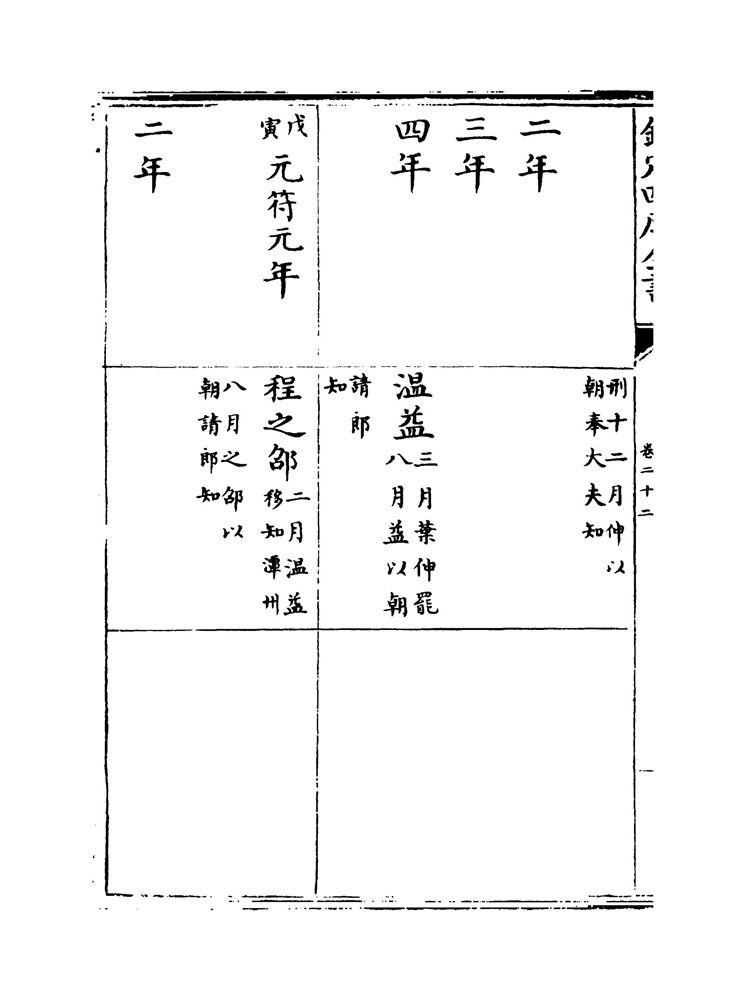 欽定四庫全書
卷二十二
二年
三年
四年
刑十二月伸以
朝奉大夫知
温益
三月葉伸罷
八月益以朝
請郎
知
戊
寅
元符元年
二年
程之邵
二月温益
移知潭州
八月之邵以
朝請郎知